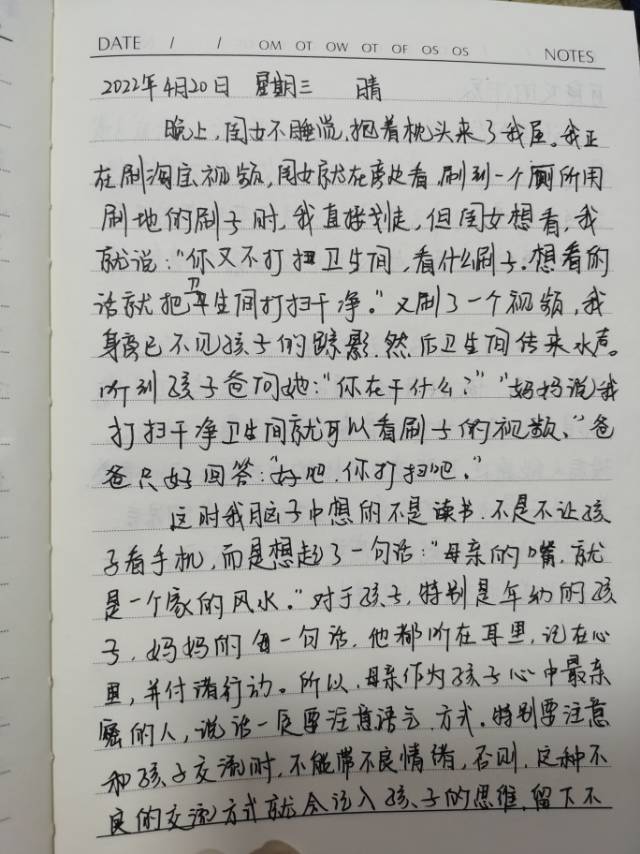 DATE / / OM OT OW OT OF OS OS NOTES
2022年4月20日 星期三 晴
晚上,闺女不睡觉,抱着枕头来了我屋。我正
在刷淘宝视频,闺女就在旁边看,刷到一个厕所用
刷地的刷子时,我直接划走,但闺女想看,我
就说:“你又不打扫卫生间,看什么刷子。想看的
话就把卫生间打扫干净。”又刷了一个视频,我
身旁已不见孩子的踪影,然后卫生间传来水声。
听到孩子爸问她:“你在干什么?”“妈妈说我
打扫干净卫生间就可以看刷子的视频、”爸
爸只好回答:“好吧,你打扫吧。”
这时我脑子中想的不是读书,不是不让孩
子看手机,而是想起了一句话:“母亲的嘴,就
是一个家的风水。”对于孩子,特别是年幼的孩
子,妈妈的每一句话,他都听在耳里,记在心
里,并付诸行动。所以,母亲作为孩子心中最亲
近的人,说话一定要注意语气、方式。特别要注意
和孩子交流时,不能带不良情绪,否则,这种不
良的交流方式就会注入孩子的思维,留下不